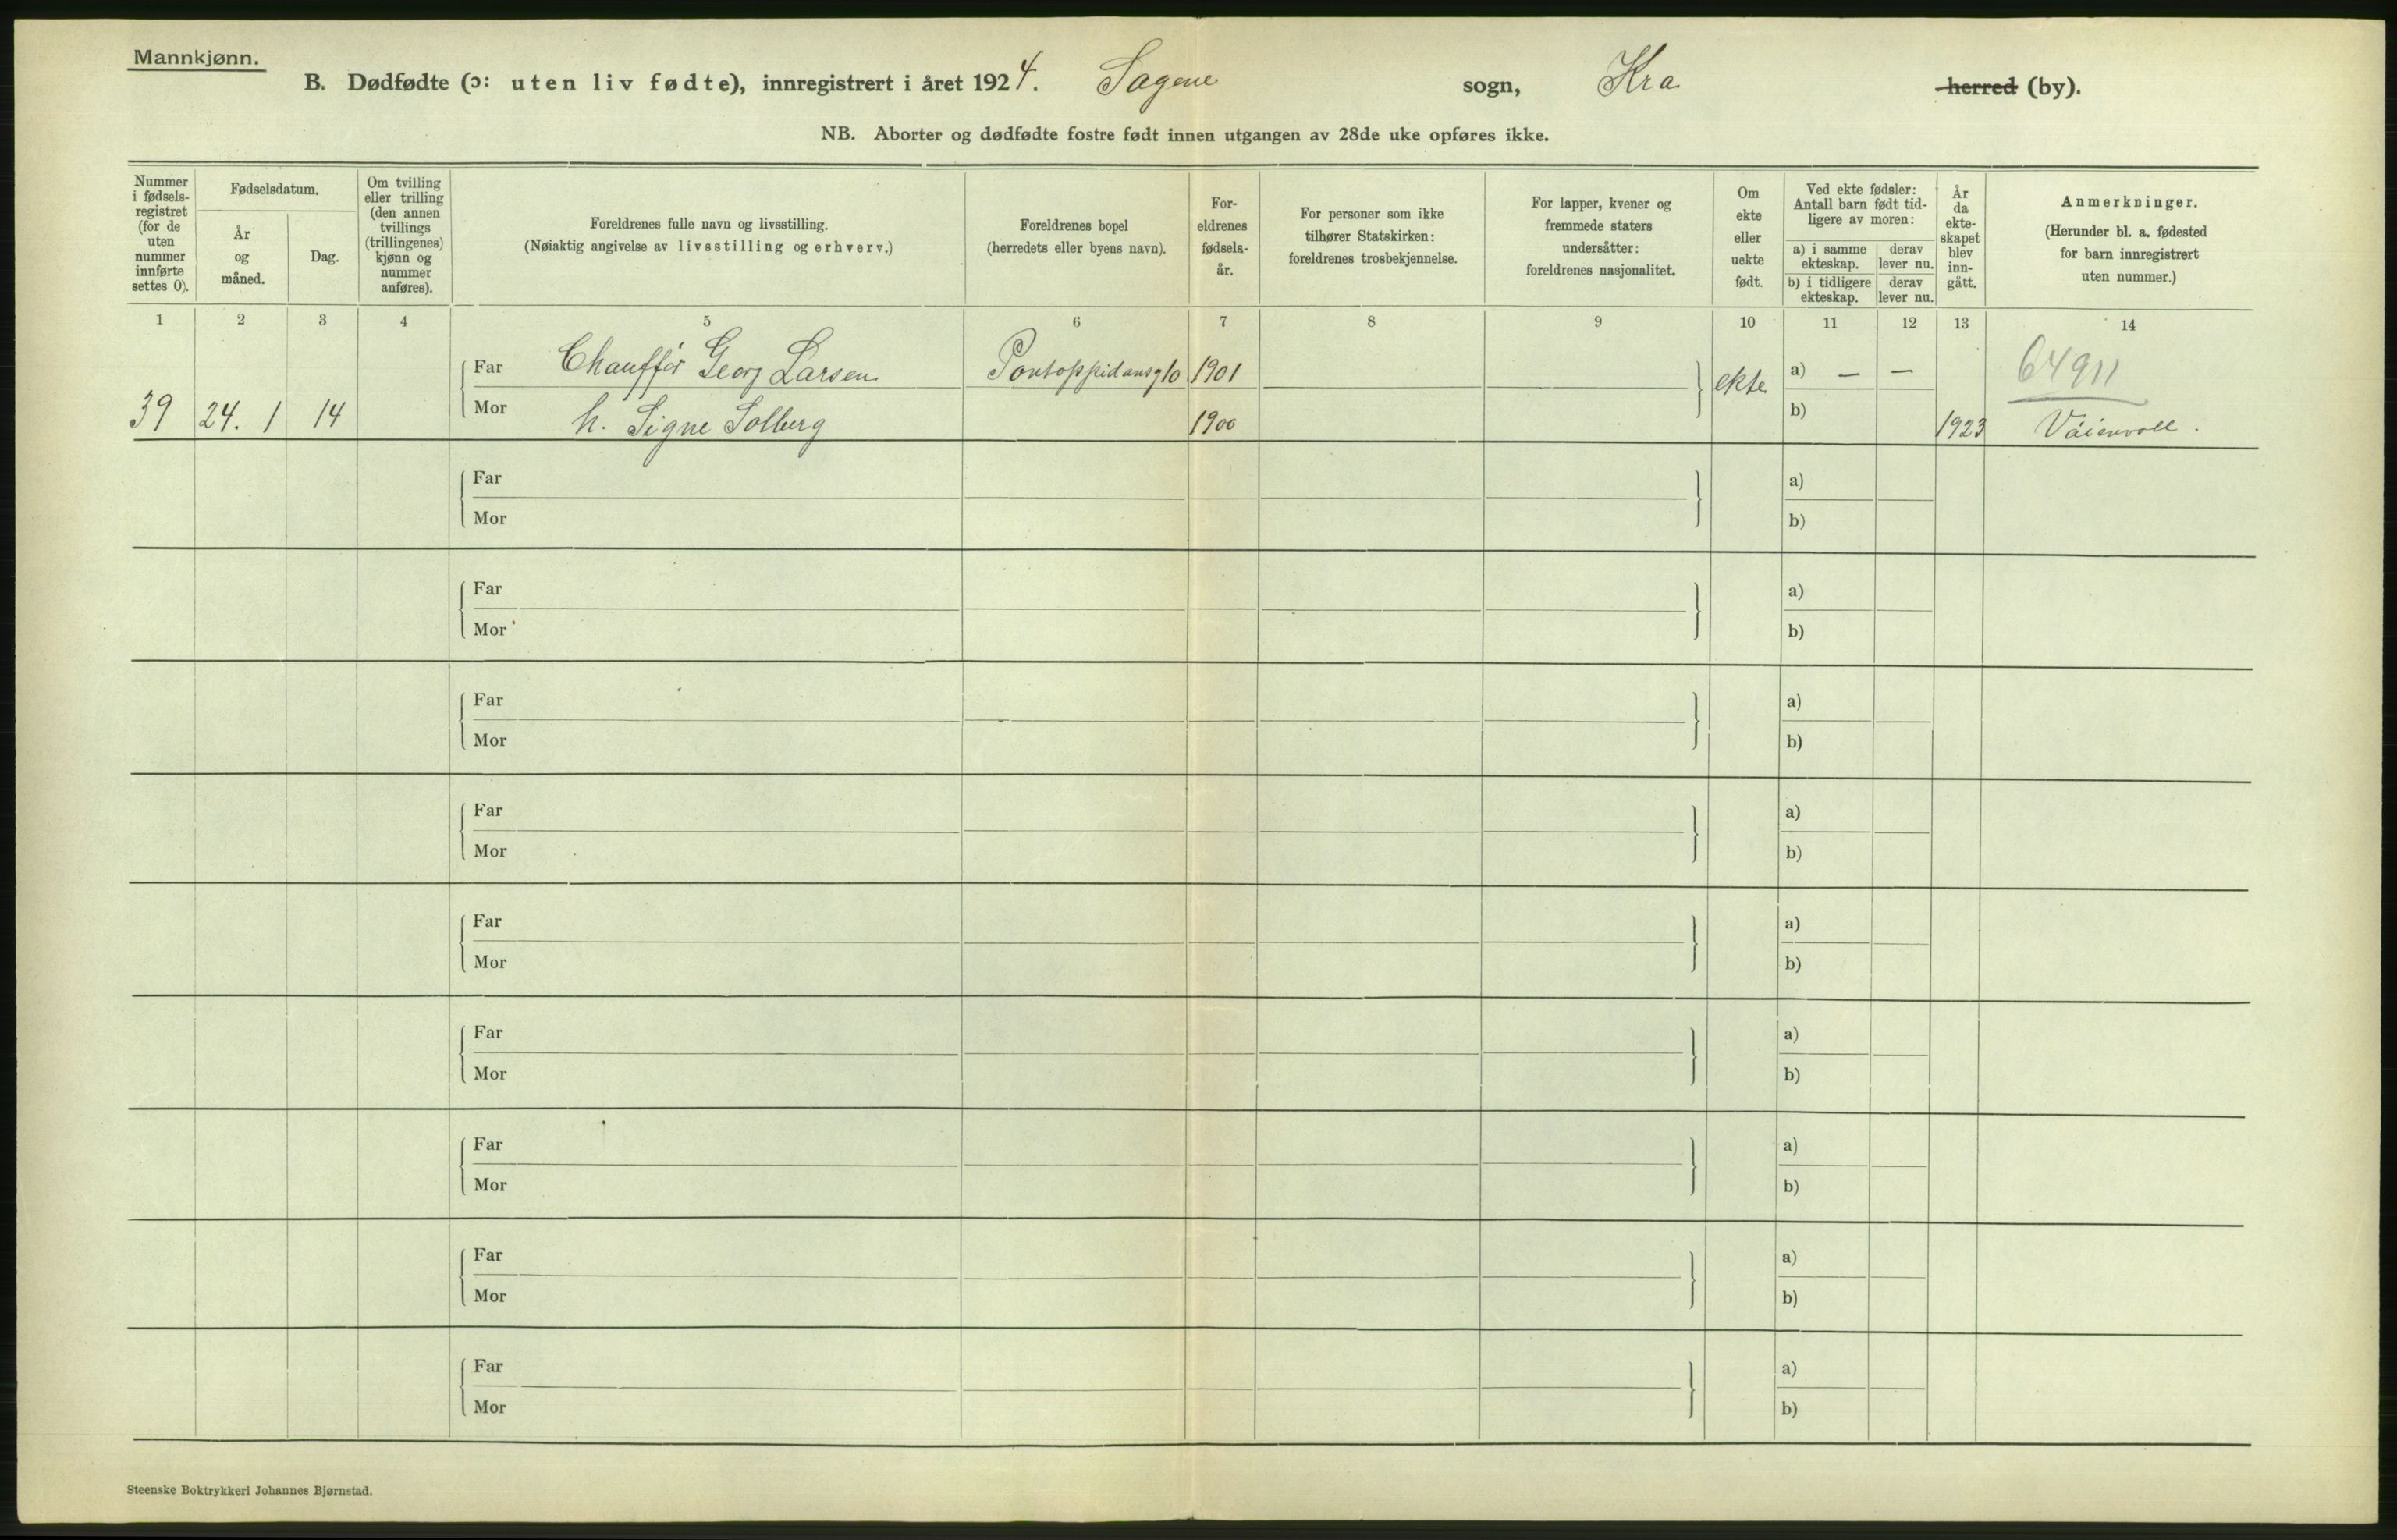 Mannkjønn.
B. Dødfødte (ɔ: uten liv fødte), innregistrert i året 1924. Sagene sogn, Kra herred (by).
NB. Aborter og dødfødte fostre født innen utgangen av 28de uke opføres ikke.
Nummer
i fødsels-
registret
(for de
uten
nummer
innførte
settes 0).
Fødselsdatum.
År
og
måned.
Dag.
Om tvilling
eller trilling
(den annen
tvillings
(trillingenes)
kjønn og
nummer
anføres).
Foreldrenes fulle navn og livsstilling.
(Nøiaktig angivelse av livsstilling og erhverv.)
Foreldrenes bopel
(herredets eller byens navn).
For-
eldrenes
fødsels-
år.
For personer som ikke
tilhører Statskirken:
foreldrenes trosbekjennelse.
For lapper, kvener og
fremmede staters
undersåtter:
foreldrenes nasjonalitet.
Om
ekte
eller
uekte
født.
Ved ekte fødsler:
Antall barn født tid-
ligere av moren:
a) i samme
ekteskap.
derav
lever nu.
b) i tidligere
ekteskap.
derav
lever nu.
År
da
ekte-
skapet
blev
inn-
gått.
Anmerkninger.
(Herunder bl. a. fødested
for barn innregistrert
uten nummer.)
1 2 3 4 5 6 7 8 9 10 11 12 13 14
Far Chauffør Georg Larsen Pontoppidansg 10 1901 ekte a) — — 64911
39 24. 1 14 Mor h. Signe Solberg 1900 b) 1923
Far a)
Mor b)
Far a)
Mor b)
Far a)
Mor b)
Far a)
Mor b)
Far a)
Mor b)
Far a)
Mor b)
Far a)
Mor b)
Far a)
Mor b)
Far a)
Mor b)
Steenske Boktrykkeri Johannes Bjørnstad.